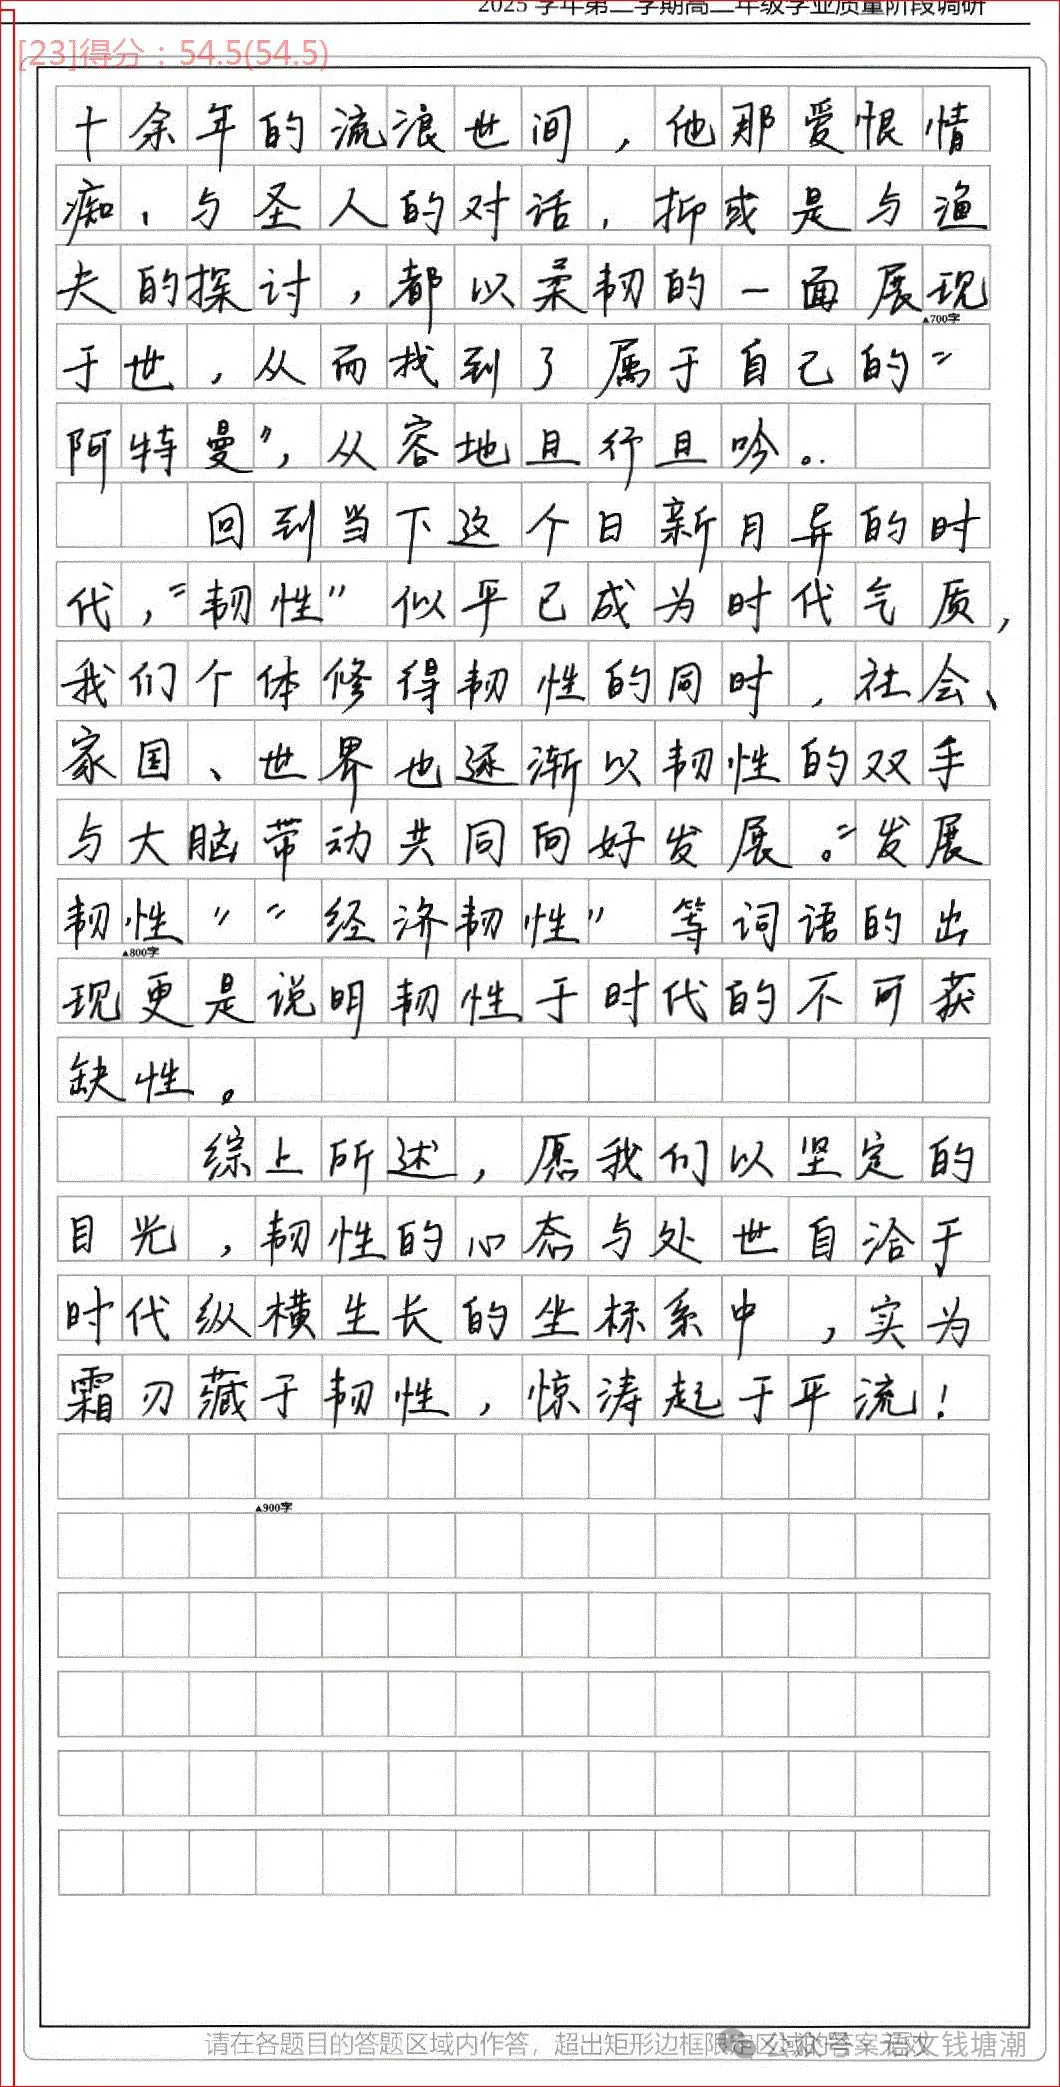 2025 学年第二学期高二年级学业质量阶段调研
[23]得分：54.5(54.5)
十余年的流浪世间，他那爱恨情
痴，与圣人的对话，抑或是与渔
夫的探讨，都以柔韧的一面展现
▲700字
于世，从而找到了属于自己的“
阿特曼”，从容地且行且吟。
回到当下这个日新月异的时
代，“韧性”似乎已成为时代气质，
我们个体修得韧性的同时，社会、
家国、世界也逐渐以韧性的双手
与大脑带动共同向好发展。“发展
韧性”“经济韧性”等词语的出
▲800字
现更是说明韧性于时代的不可获
缺性。
综上所述，愿我们以坚定的
目光，韧性的心态与处世自洽于
时代纵横生长的坐标系中，实为
霜刃藏于韧性，惊涛起于平流！
▲900字
请在各题目的答题区域内作答，超出矩形边框限定区域的答案无效
公众号·语文钱塘潮